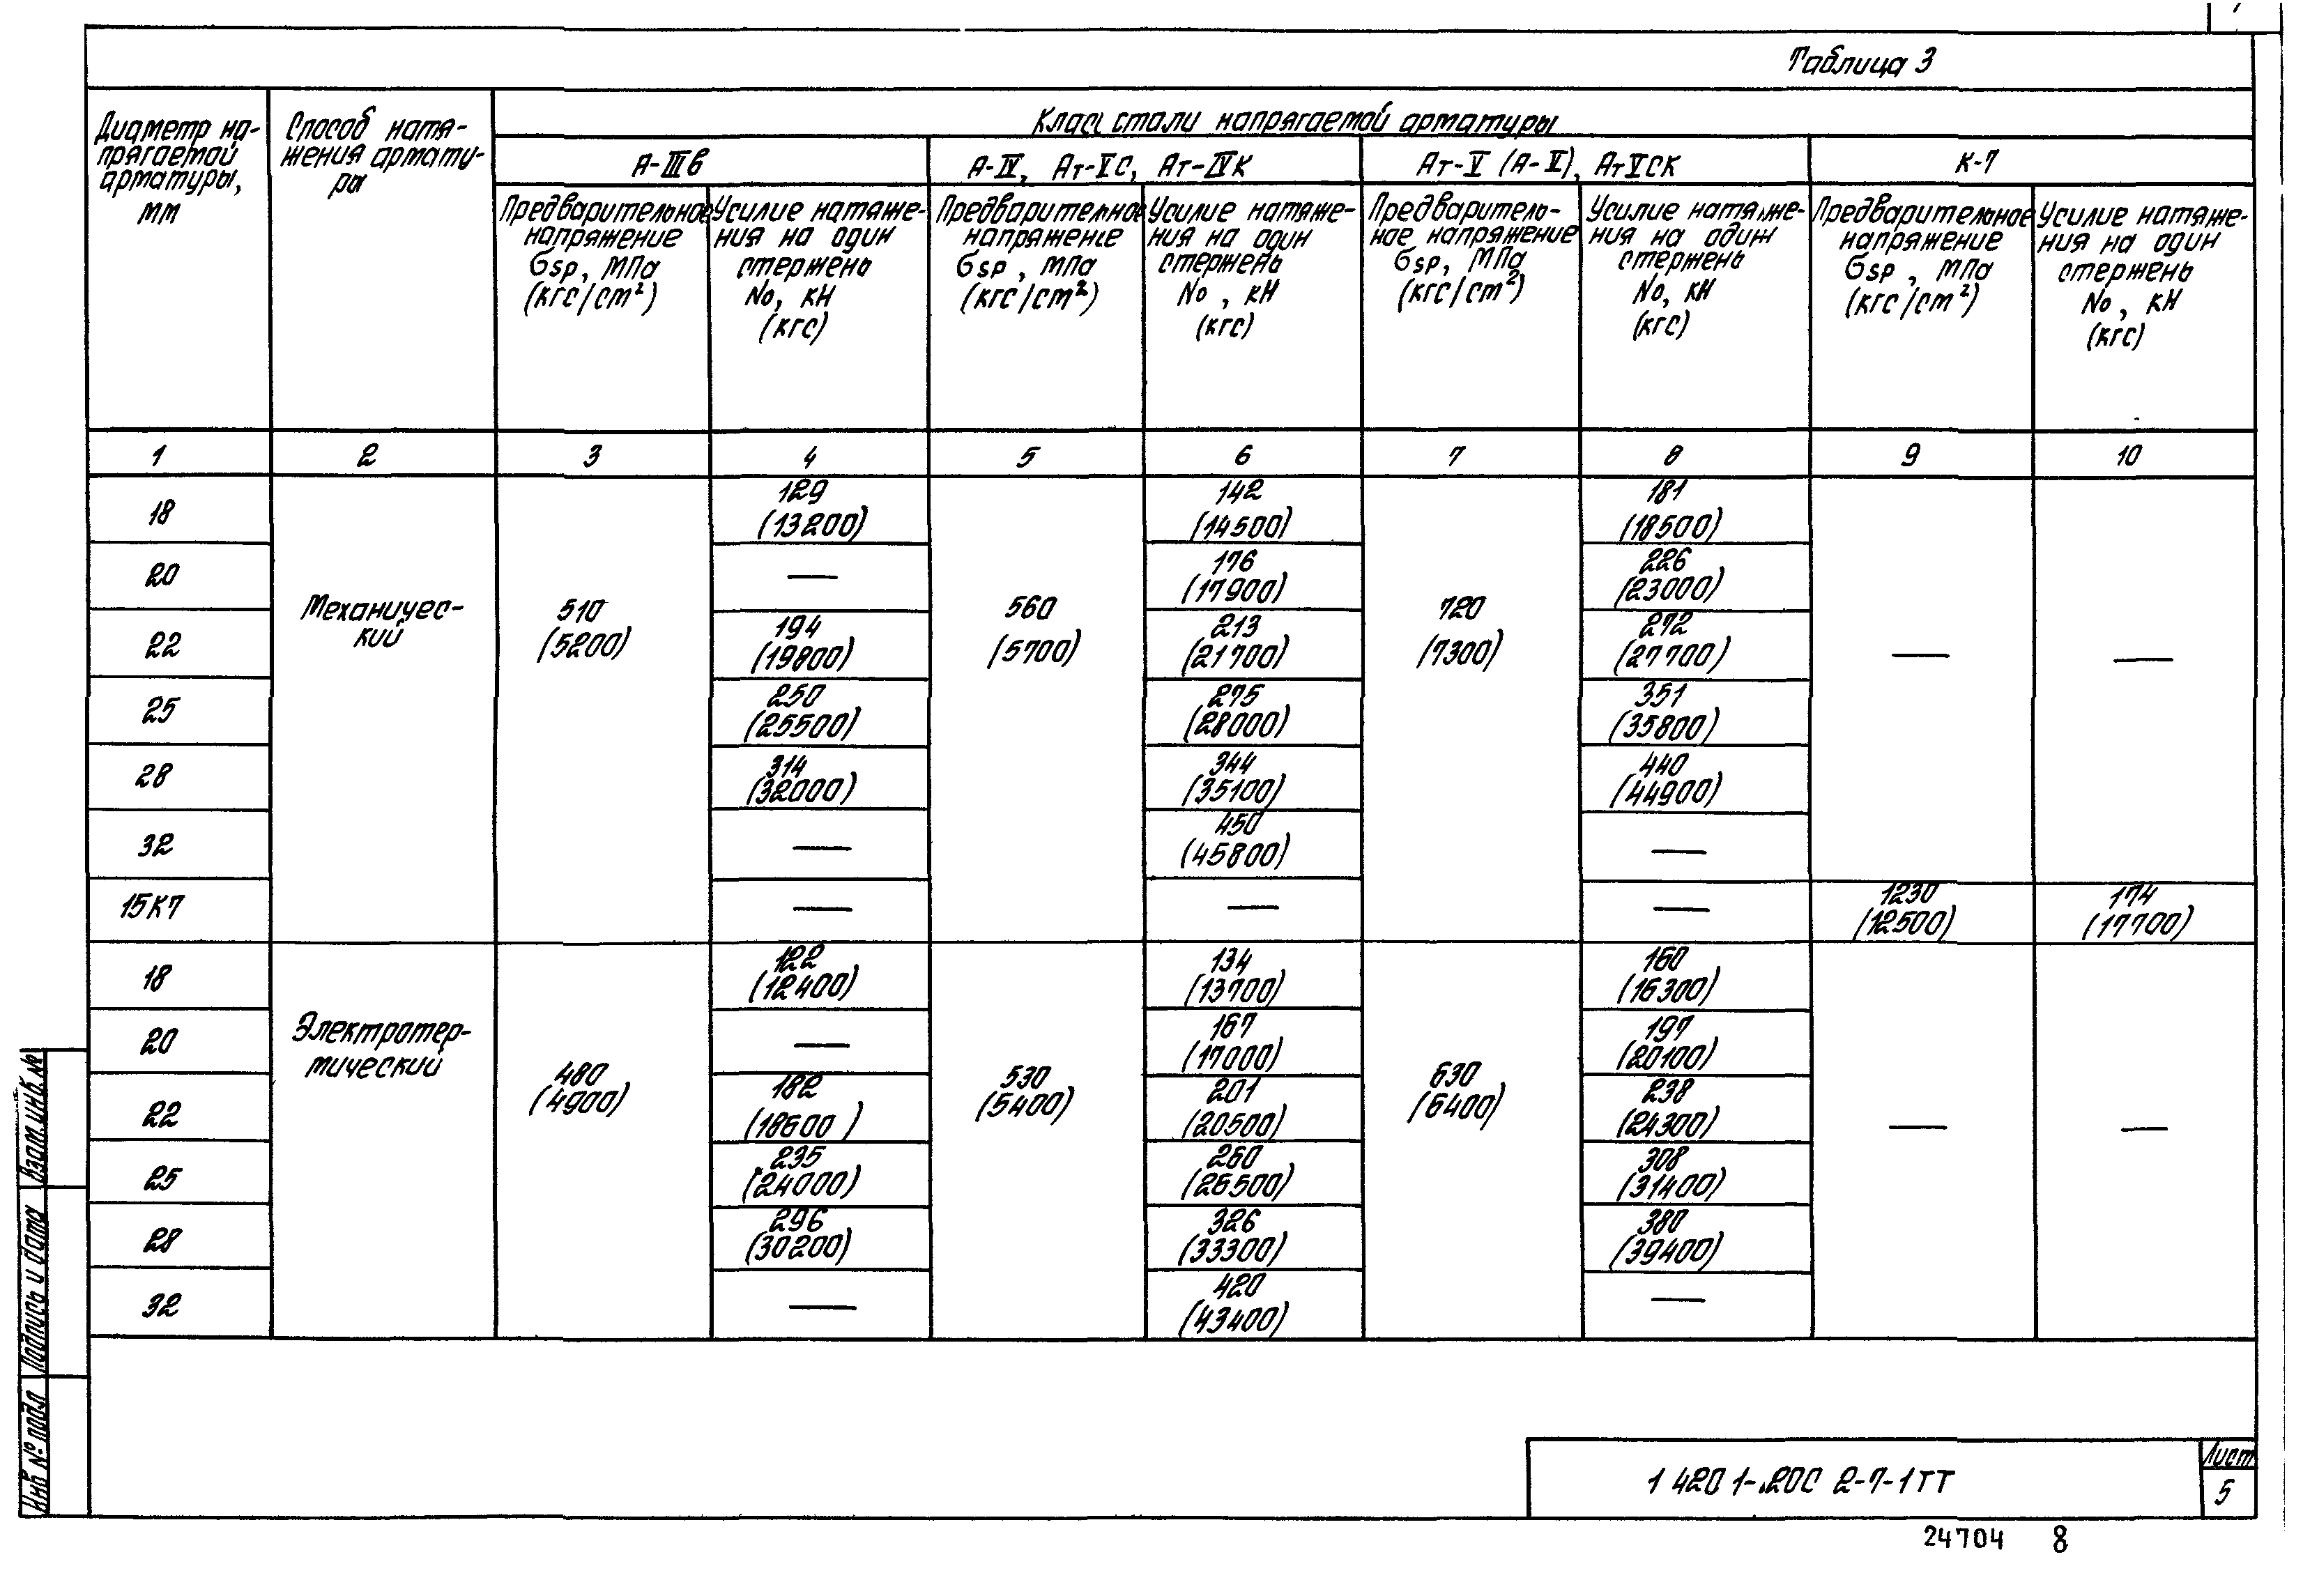 Таблица 3
Диаметр на-
прягаемой
арматуры,
мм
Способ натя-
жения армату-
ры
Класс стали напрягаемой арматуры
А-IIIв
А-IV, Ат-VС, Ат-IVК
Ат-V (А-V), АтVСК
К-7
Предварительное
напряжение
бsp, МПа
(кгс/см²)
Усилие натяже-
ния на один
стержень
No, кН
(кгс)
Предварительное
напряжение
бsp, МПа
(кгс/см²)
Усилие натяже-
ния на один
стержень
No, кН
(кгс)
Предваритель-
ное напряжение
бsp, МПа
(кгс/см²)
Усилие натяже-
ния на один
стержень
No, кН
(кгс)
Предварительное
напряжение
бsp, МПа
(кгс/см²)
Усилие натяже-
ния на один
стержень
No, кН
(кгс)
1 2 3 4 5 6 7 8 9 10
Механичес-
кий
510
(5200)
560
(5700)
720
(7300)
— —
18
129 142 181
(13200) (14500) (18500)
20
— 176 226
(17900) (23000)
22
194 213 272
(19800) (21700) (27700)
25
250 275 351
(25500) (28000) (35800)
28
314 344 440
(32000) (35100) (44900)
32
— 450 —
(45800)
15К7
— — — 1230 174
(12500) (17700)
Электротер-
мический
480
(4900)
530
(5400)
630
(6400)
— —
18
122 134 160
(12400) (13700) (16300)
20
— 167 197
(17000) (20100)
22
182 201 238
(18600) (20500) (24300)
25
235 260 308
(24000) (26500) (31400)
28
296 326 380
(30200) (33300) (39400)
32
— 420 —
(43400)
Взам.инв.№
Подпись и дата
Инв № подл
1 420 1-.20С 2-7-1ТТ
Лист
5
24704 8